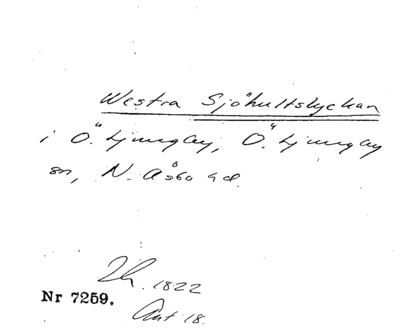 Westra Sjöhultslyckan
i Ö. Ljungby, Ö. Ljungby
sn, N. Åsbo hd.
1822
Nr 7259.
Ant 18.